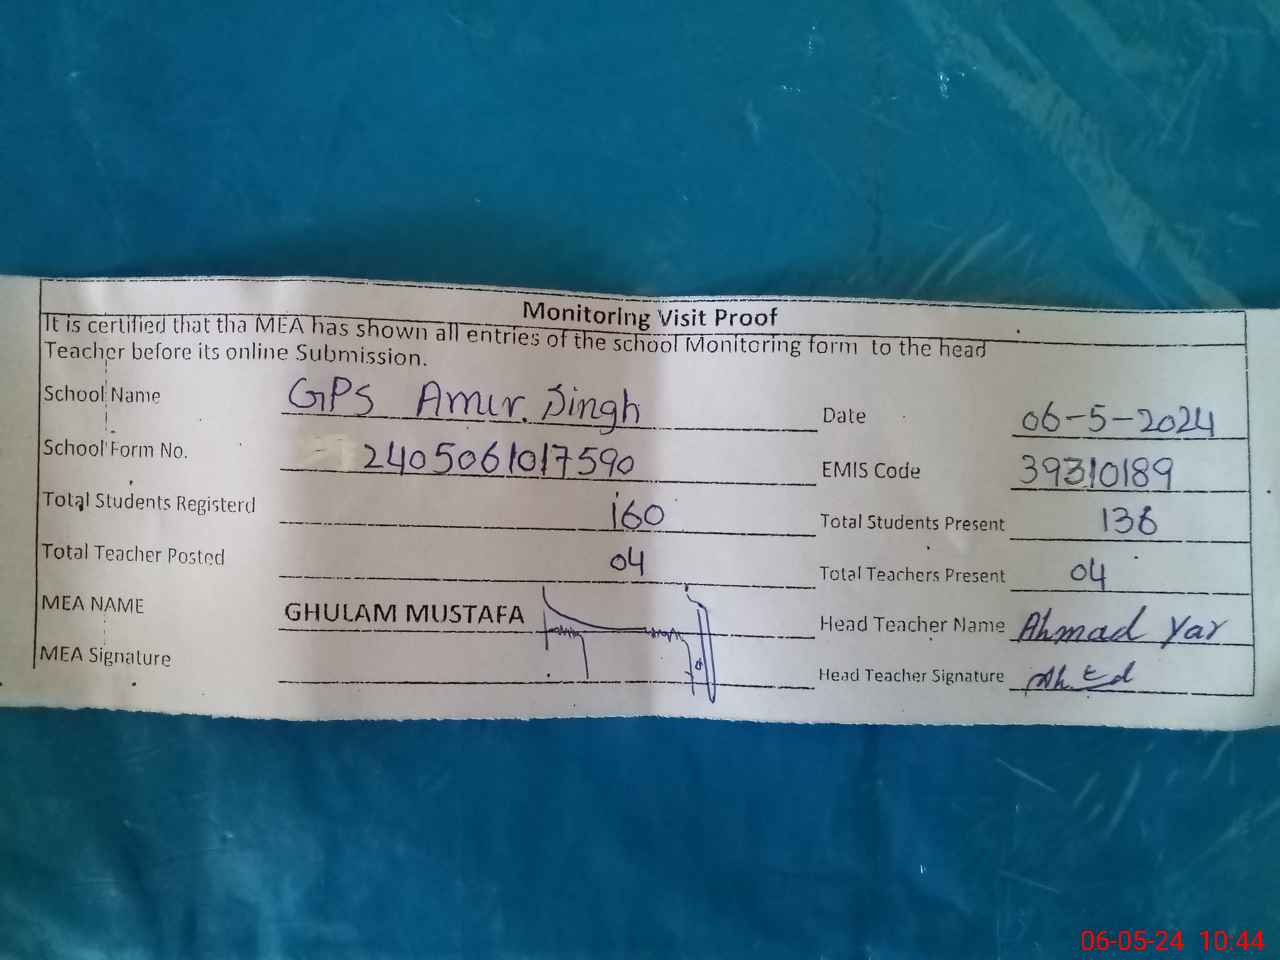 Monitoring Visit Proof
It is certified that tha MEA has shown all entries of the school Monitoring form to the head
Teacher before its online Submission.
School Name GPS Amir Singh Date 06-5-2024
School Form No. 2405061017590 EMIS Code 39310189
Total Students Registerd 160 Total Students Present 136
Total Teacher Posted 04 Total Teachers Present 04
MEA NAME GHULAM MUSTAFA Head Teacher Name Ahmad Yar
MEA Signature Head Teacher Signature
06-05-24 10:44